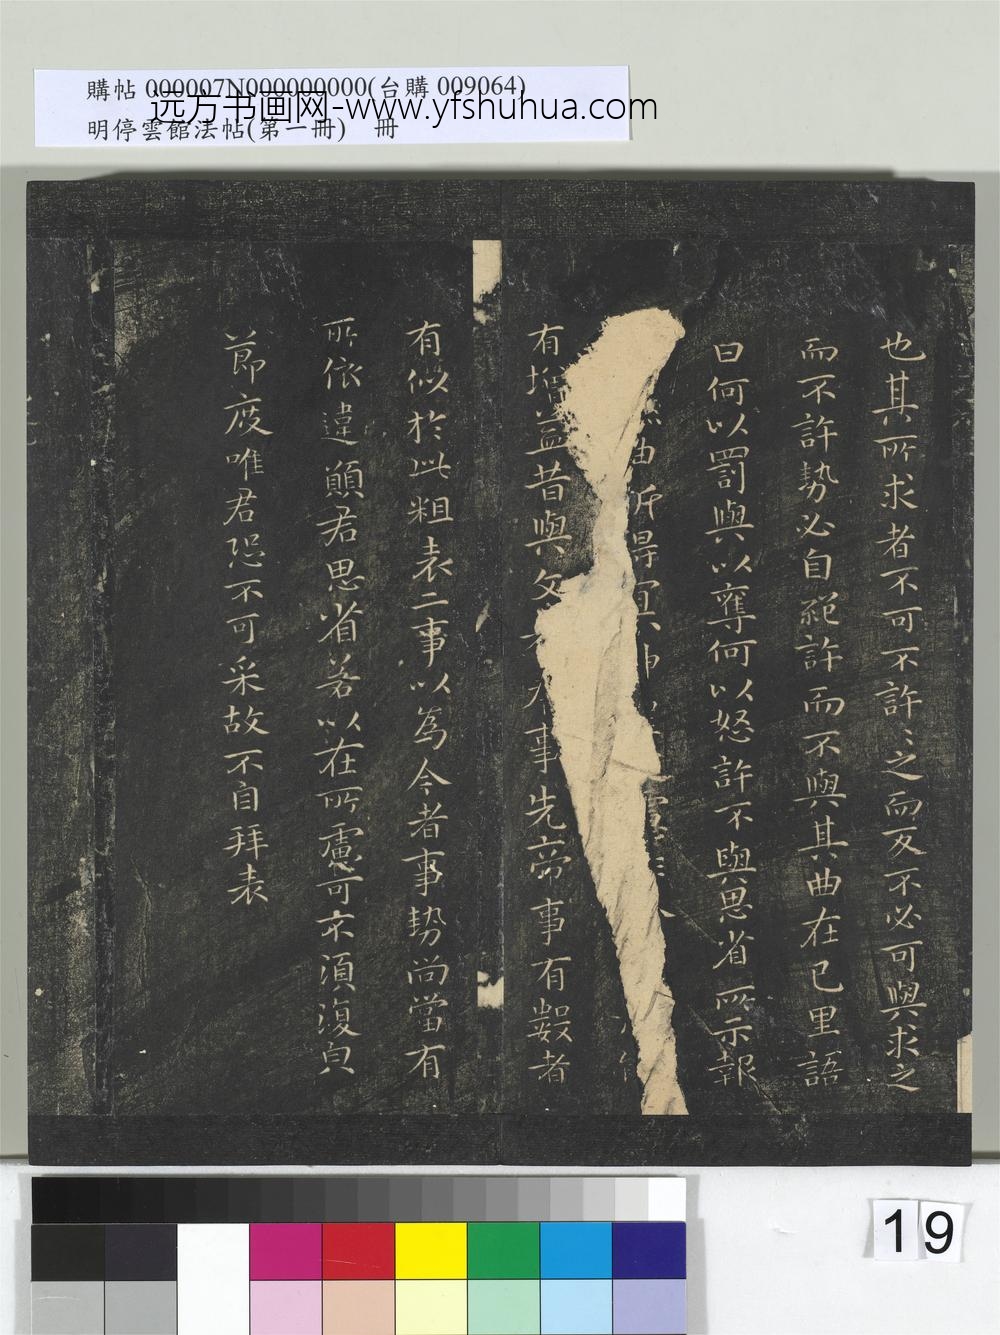 購帖 000007N000000000(台購 009064)
远方书画网-www.yfshuhua.com
明停雲館法帖(第一冊) 冊
也其所求者不可不許〻之而反不必可與求之
而不許勢必自絕許而不與其曲在己里語
曰何以罰與以奪何以怒許不與思省所示報
宜神
有增益昔與文事先帝事有數者
有似於此粗表二事以為今者事勢尚當有
所依違願君思省若以在所慮可不須復皃
節度唯君恐不可采故不自拜表
19